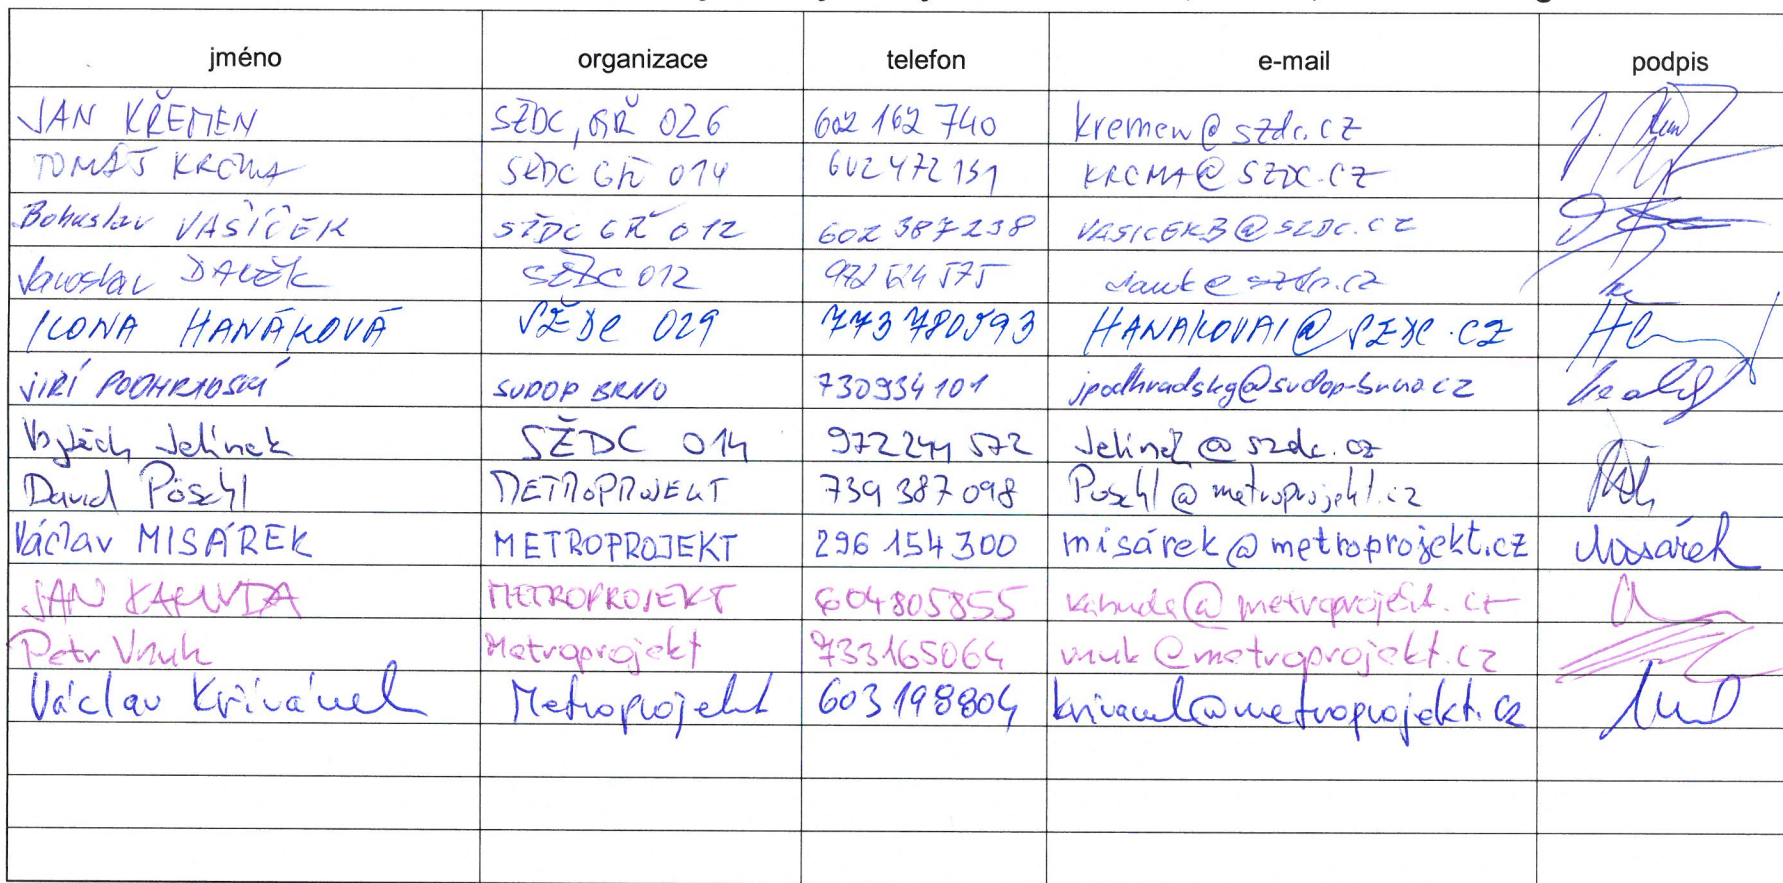 jméno organizace telefon e-mail podpis
JAN KŘEMEN SŽDC, GŘ 026 602 162 740 kremen@szdc.cz
TOMÁŠ KRCMA SŽDC GŘ 014 602 472 151 KRCMA@SZDC.CZ
Bohuslav VAŠÍČEK SŽDC GŘ 012 602 387 238 VASICEKB@SZDC.CZ
Jaroslav SŽDC 012 972 524 575
ILONA HANÁKOVÁ SŽDC 029 773 780593 HANAKOVAI@SZDC.CZ
JIŘÍ PODHRADSKÝ SUDOP BRNO 730934101 jpodhradsky@sudop-brno.cz
Vojtěch Jelínek SŽDC 014 972244 572 Jelinek@szdc.cz
David Pöschl METROPROJEKT 739 387 098 Poschl@metroprojekt.cz
Václav MISÁREK METROPROJEKT 296 154 300 misárek@metroprojekt.cz Misárek
JAN KAHUDA METROPROJEKT 604805855 kahuda@metroprojekt.cz
Petr Vnuk Metroprojekt 733165064 vnuk@metroprojekt.cz
Václav Křivánek Metroprojekt 603 198804 krivanek@metroprojekt.cz